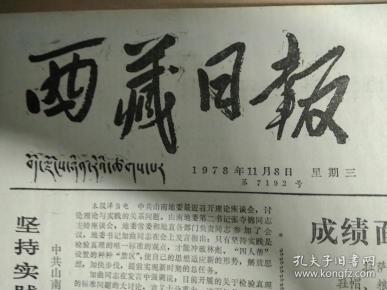 西藏日报
བོད་ལྗོངས་ཉིན་རེའི་ཚགས་པར
1978年11月8日 星期三
第7192号
坚持实践
中共山南
本报泽当电 中共山南地委最近召开理论座谈会,讨
论理论与实践的关系问题。山南地委第二书记张令魏同志
主持座谈会,地委常委和地直各部门负责同志参加了会
议。地委书记如曲同志在会上发言指出,只有坚持实践是
检验真理的唯一标准的观点,才能冲破林彪、“四人帮”
设置的种种“禁区”,使自己的思想适应新的形势,解放思
想,加快步伐,提前实现新时期的总任务。
如曲同志在发言中强调说:目前开展的关于检验真理
的标准问题的大讨论,
成绩面
孔夫子旧书网